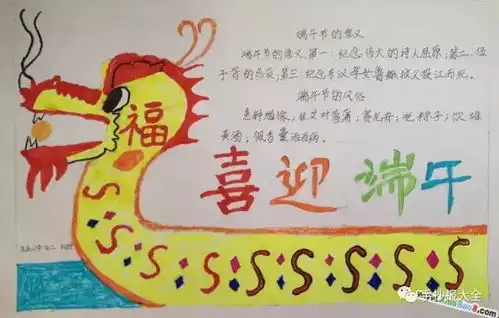 端午节的意义
端午节的意义,第一:纪念伟大的诗人屈原;第二:伍
子胥的忌辰;第三:纪念东汉孝女曹娥救父投江而死。
端午节的风俗
悬钟馗像;挂艾叶菖蒲;赛龙舟;吃粽子;饮雄
黄酒;佩香囊治百病。
福
喜迎端午
手抄报大全